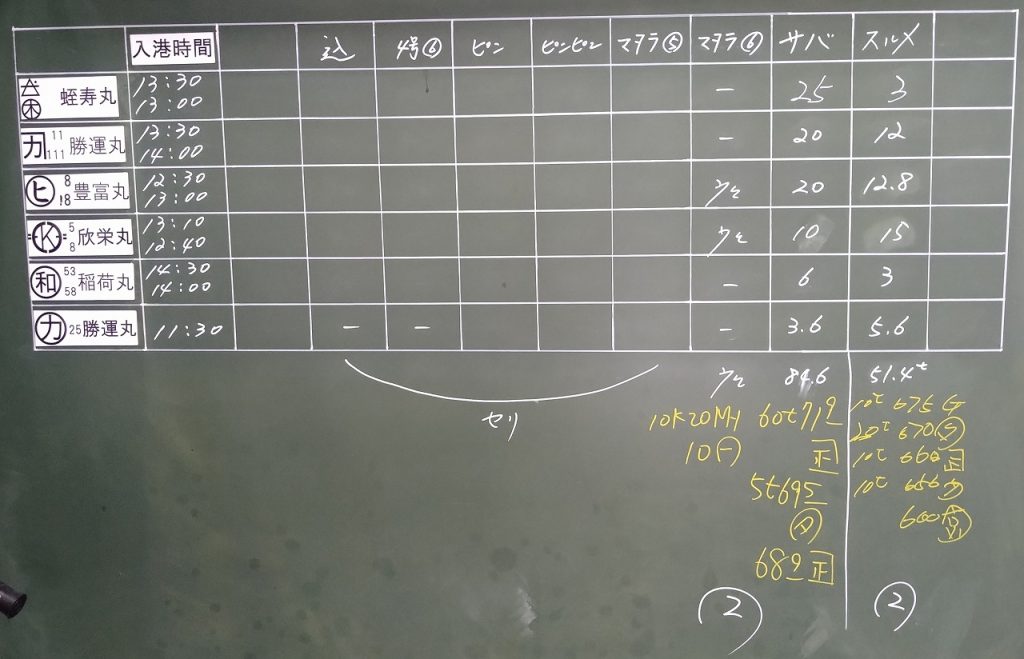 入港時間 込 4号⑥ ピン ピンピン マダラ⑤ マダラ⑥ サバ スルメ
蛭寿丸 13:30 13:00 - 25 3
カ 11 111 勝運丸 13:30 14:00 - 20 12
ヒ 8 18 豊富丸 12:30 13:00 20 12.8
K 5 8 欣栄丸 13:10 12:40 10 15
和 53 58 稲荷丸 14:30 14:00 - 6 3
カ 25 勝運丸 11:30 - - - 3.6 5.6
84.6 51.4t
セリ
10K20MY 60t719 10t 675
10㊀ 正 20t 670
10t 660 正
5t695 10t 656
600
689 正
② ②